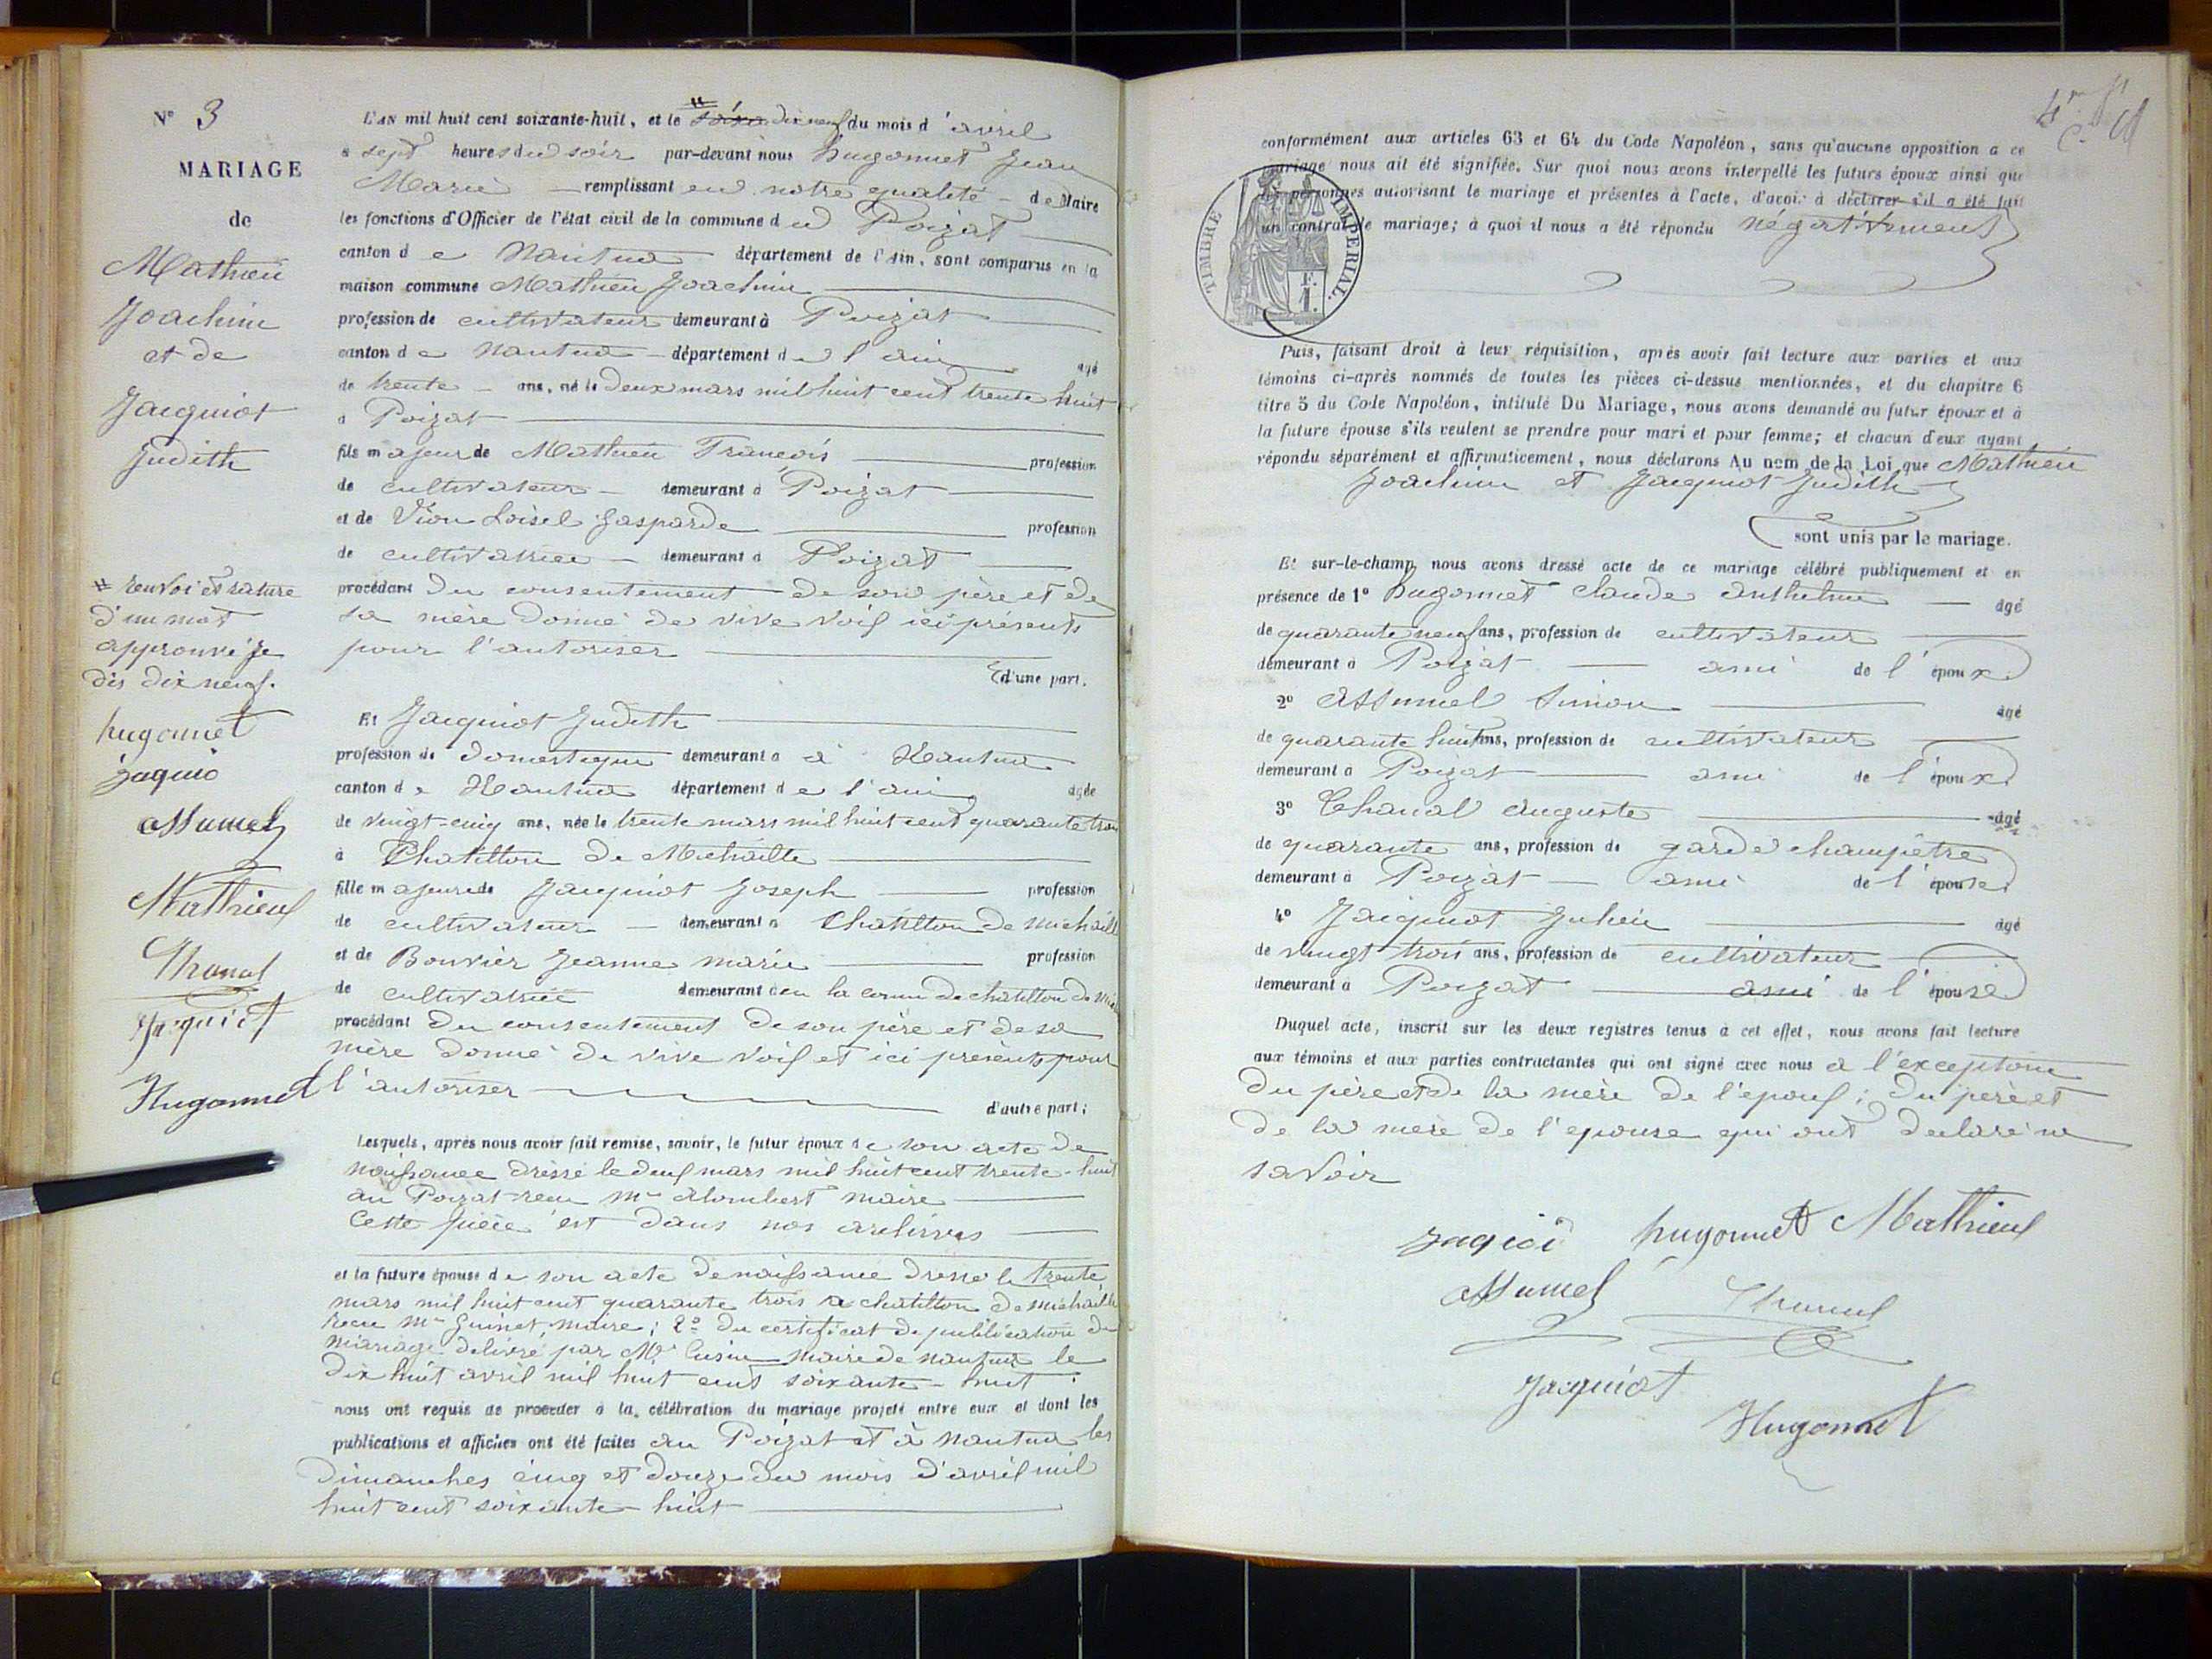 N° 3
MARIAGE
de
Mathieu
Joachim
et de
Jacquiot
Judith
# renvoi et rature
d'un mot
approuvé je
dis dix neuf.
hugonnet
jaquio
Assumel
Mathieux
Chanal
Jacquiot
Hugonnet
L'AN mil huit cent soixante-huit, et le # dix neuf du mois d'avril
a sept heures du soir par-devant nous hugonnet Jean
Marie remplissant en notre qualité de Maire
les fonctions d'Officier de l'état civil de la commune d u Poizat
canton d e Nantua département de l'Ain, sont comparus en la
maison commune Mathieu Joachim
profession de cultivateur demeurant à Poizat
canton d e Nantua département d e l'ain agé
de trente ans, né le deux mars mil huit cent trente huit
a Poizat
fils majeur de Mathieu François profession
de cultivateur demeurant à Poizat
et de Vion Loisel Gasparde profession
de cultivatrice demeurant à Poizat
procédant du consentement de son père et de
sa mère donné de vive voix ici présents
pour l'autoriser
d'une part.
Et Jacquiot Judith
profession de domestique demeurant a à Nantua
canton d e Nantua département d e l'ain agée
de vingt-cinq ans, née le trente mars mil huit cent quarante trois
à Chatillon de Michaille
fille majeure de Jacquiot Joseph profession
de cultivateur demeurant a Chatillon de Michaille
et de Bouvier Jeanne marie profession
de cultivatrice demeurant à en la comm de chatillon de Mi
procédant du consentement de son père et de sa
mère donné de vive voix et ici présents pour
l'autoriser
d'autre part;
Lesquels, après nous avoir fait remise, savoir, le futur époux de son acte de
naissance dressé le deux mars mil huit cent trente-huit
au Poizat reçu Mr Alombert maire
Cette pièce est dans nos archives
et la future épouse de son acte de naissance dressé le trente
mars mil huit cent quarante trois a chatillon de michaille
reçu Mr Guinet, maire; 2° du certificat de publication de
mariage délivré par Mr maire de nantua le
dix huit avril mil huit cent soixante-huit
nous ont requis de procéder à la célébration du mariage projeté entre eux et dont les
publications et affiches ont été faites au Poizat et à Nantua les
Dimanches cinq et douze du mois d'avril mil
huit cent soixante-huit
conformément aux articles 63 et 64 du Code Napoléon, sans qu'aucune opposition a ce
mariage nous ait été signifiée. Sur quoi nous avons interpellé les futurs époux ainsi que
les personnes autorisant le mariage et présentes à l'acte, d'avoir à déclarer s'il a été fait
un contrat de mariage; à quoi il nous a été répondu négativement
TIMBRE IMPERIAL.
1. F.
Puis, faisant droit à leur réquisition, après avoir fait lecture aux parties et aux
témoins ci-après nommés de toutes les pièces ci-dessus mentionnées, et du chapitre 6
titre 5 du Code Napoléon, intitulé Du Mariage, nous avons demandé au futur époux et à
la future épouse s'ils veulent se prendre pour mari et pour femme; et chacun d'eux ayant
répondu séparément et affirmativement, nous déclarons Au nom de la Loi que Mathieu
Joachim et Jacquiot Judith
sont unis par le mariage.
Et sur-le-champ, nous avons dressé acte de ce mariage célébré publiquement et en
présence de 1° hugonnet Claude anthelme agé
de quarante neuf ans, profession de cultivateur
demeurant à Poizat ami de l'époux
2° Assumel Simon agé
de quarante huit ans, profession de cultivateur
demeurant à Poizat ami de l'époux
3° Chanal Auguste agé
de quarante ans, profession de garde champêtre
demeurant à Poizat ami de l'épouse
4° Jacquiot Julien agé
de vingt trois ans, profession de cultivateur
demeurant à Poizat ami de l'épouse
Duquel acte, inscrit sur les deux registres tenus à cet effet, nous avons fait lecture
aux témoins et aux parties contractantes qui ont signé avec nous a l'exception
du père et de la mère de l'époux; du père et
de la mère de l'epouse qui ont déclaré ne
savoir
jaqioi hugonnet Mathieux
Assumel Chanal
Jacquiot
Hugonnet